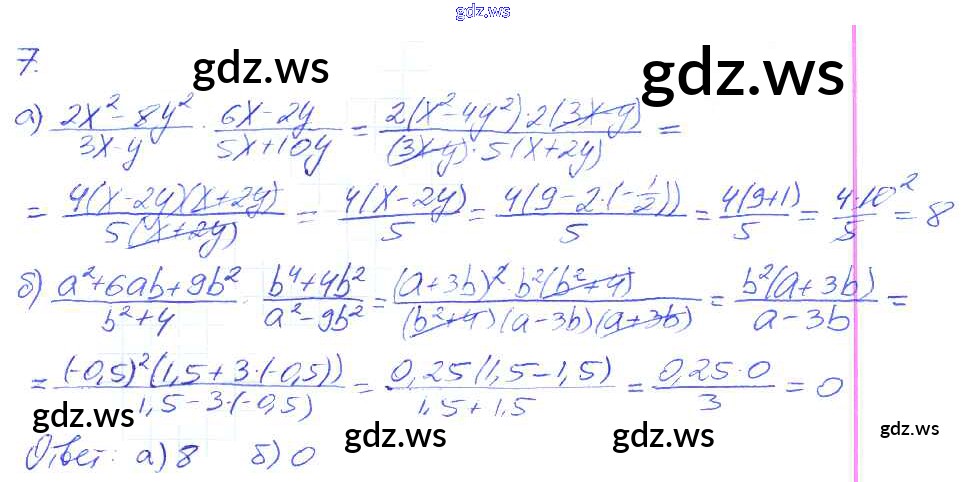 gdz.ws
7.
gdz.ws gdz.ws
а) \frac{2x^2-8y^2}{3x-y} · \frac{6x-2y}{5x+10y} = \frac{2(x^2-4y^2)·2(3x-y)}{(3x-y)·5(x+2y)} =
= \frac{4(x-2y)(x+2y)}{5(x+2y)} = \frac{4(x-2y)}{5} = \frac{4(9-2·(-\frac{1}{2}))}{5} = \frac{4(9+1)}{5} = \frac{4·10^2}{5} = 8
б) \frac{a^2+6ab+9b^2}{b^2+4} · \frac{b^4+4b^2}{a^2-9b^2} = \frac{(a+3b)^2·b^2(b^2+4)}{(b^2+4)(a-3b)(a+3b)} = \frac{b^2(a+3b)}{a-3b} =
= \frac{(-0,5)^2(1,5+3·(-0,5))}{1,5-3·(-0,5)} = \frac{0,25(1,5-1,5)}{1,5+1,5} = \frac{0,25·0}{3} = 0
gdz.ws gdz.ws gdz.ws gdz.ws
Ответ: а) 8 б) 0